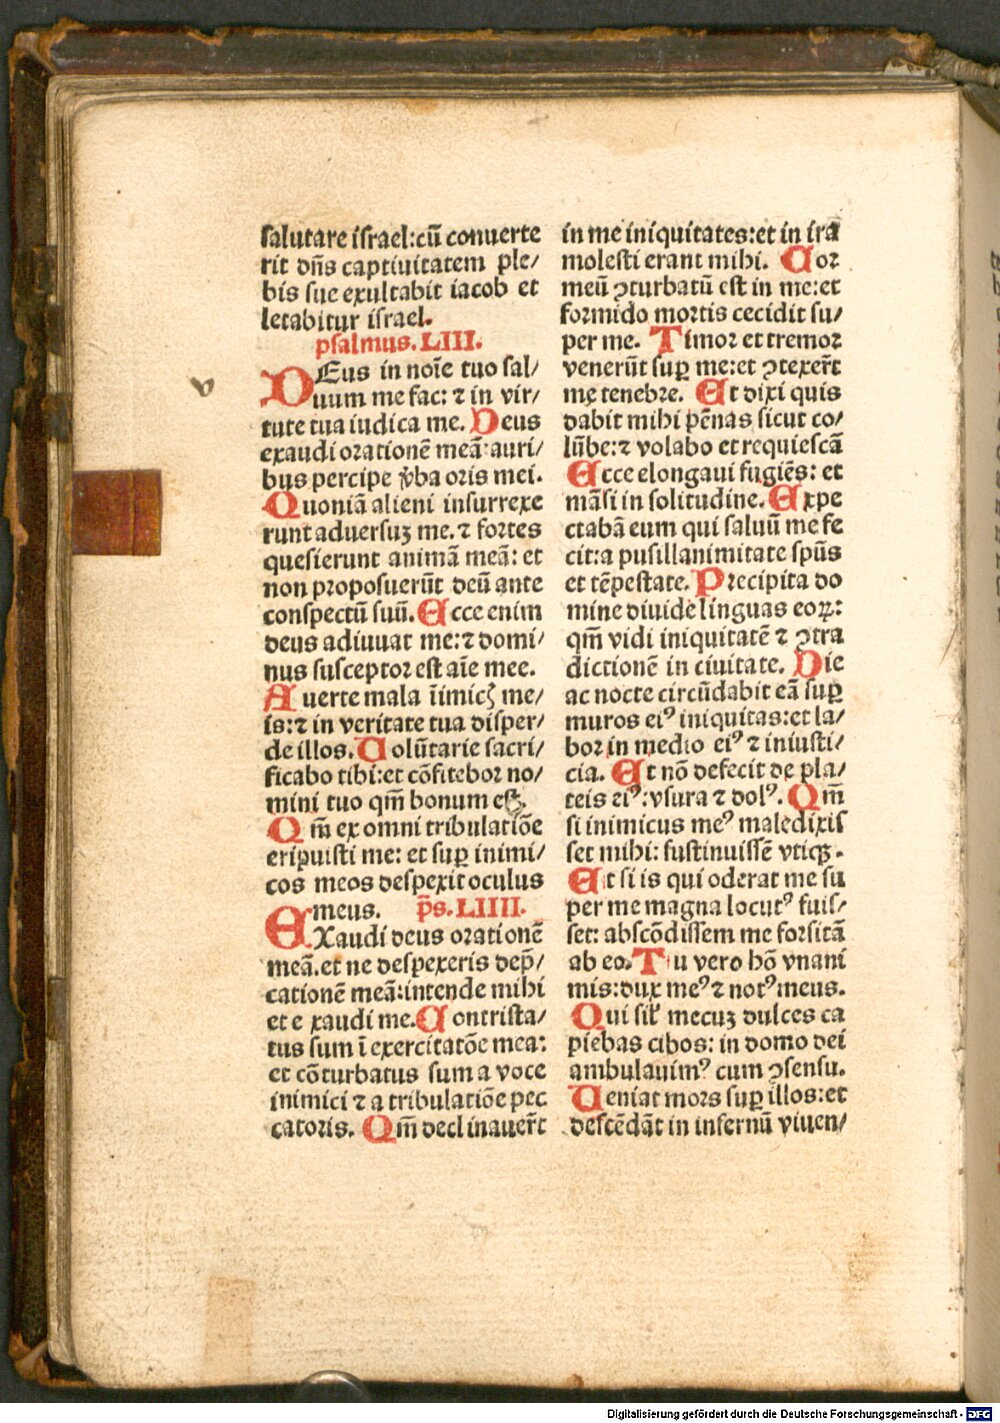 salutare israel:cū conuerte
rit dn̄s captiuitatem ple/
bis sue exultabit iacob et
letabitur israel.
psalmus.LIII.
DEus in noīe tuo sal/
uum me fac: ⁊ in vir/
tute tua iudica me. Deus
exaudi orationē meā:auri/
bus percipe ꝟba oris mei.
Quoniā alieni insurrexe
runt aduersuꝫ me. ⁊ fortes
quesierunt animā meā: et
non proposuerūt deū ante
conspectū suū. Ecce enim
deus adiuuat me:⁊ domi/
nus susceptor est aīe mee.
Auerte mala īimicꝭ me/
is:⁊ in veritate tua disper/
de illos. Uolūtarie sacri/
ficabo tibi:et cōfitebor no/
mini tuo qm̄ bonum est.
Qm̄ ex omni tribulatiōe
eripuisti me: et suꝑ inimi/
cos meos despexit oculus
meus. p̄s.LIIII.
EXaudi deus orationē
meā.et ne despexeris dep̄/
cationē meā:intende mihi
et e xaudi me. Contrista/
tus sum ī exercitatōe mea:
et cōturbatus sum a voce
inimici ⁊ a tribulatiōe pec
catoris. Qm̄ declinauer̄t
in me iniquitates:et in ira
molesti erant mihi. Cor
meū ꝯturbatū est in me:et
formido mortis cecidit su/
per me. Timor et tremor
venerūt suꝑ me:et ꝯtexer̄t
me tenebre. Et dixi quis
dabit mihi pēnas sicut co/
lūbe:⁊ volabo et requiescā
Ecce elongaui fugiēs: et
māsi in solitudine. Expe
ctabā eum qui saluū me fe
cit:a pusillanimitate spūs
et tēpestate. Precipita do
mine diuide linguas eoꝝ:
qm̄ vidi iniquitatē ⁊ ꝯtra
dictionē in ciuitate. Die
ac nocte circūdabit eā suꝑ
muros eiꝰ iniquitas:et la/
bor in medio eiꝰ ⁊ iniusti/
cia. Et nō defecit de pla/
teis eiꝰ:vsura ⁊ dolꝰ. Qm̄
si inimicus meꝰ maledixis
set mihi: sustinuissē vtiqꝫ.
Et si is qui oderat me su
per me magna locutꝰ fuis/
set: abscōdissem me forsitā
ab eo. Tu vero hō vnani
mis:dux meꝰ ⁊ notꝰ meus.
Qui sil̄ mecuꝫ dulces ca
piebas cibos: in domo dei
ambulauimꝰ cum ꝯsensu.
Ueniat mors suꝑ illos:et
descēdāt in infernū viuen/
Digitalisierung gefördert durch die Deutsche Forschungsgemeinschaft - DFG